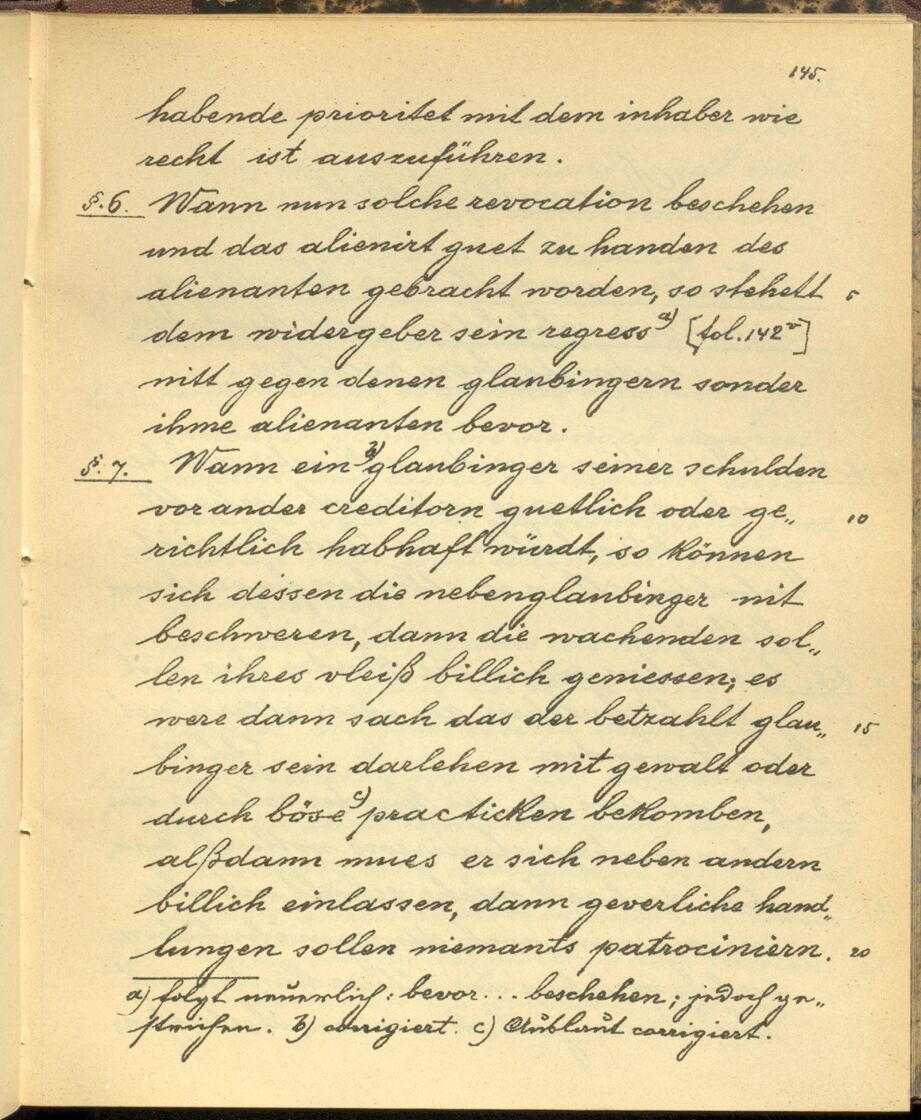 145.
habende prioritet mit dem inhaber wie
recht ist auszuführen.
§.6. Wann nun solche revocation beschehen
und das alienirt guet zu handen des
alienanten gebracht worden, so stehett 5
dem widergeber sein regress a) [fol.142v]
nitt gegen denen glaubingern sonder
ihme alienanten bevor.
§.7. Wann ein b) glaubinger seiner schulden
vor ander creditorn guetlich oder ge„ 10
richtlich habhaft würdt, so können
sich dessen die nebenglaubinger nit
beschweren, dann die wachenden sol„
len ihres vleiß billich geniessen; es
were dann sach das der betzahlt glau„ 15
binger sein darlehen mit gewalt oder
durch böse c) practicken bekomben,
alßdann mues er sich neben andern
billich einlassen, dann geverliche hand„
lungen sollen niemants patrociniern. 20
a) folgt neuerlich: bevor... beschehen; jedoch ge„
strichen. b) corrigiert. c) Auslaut corrigiert.